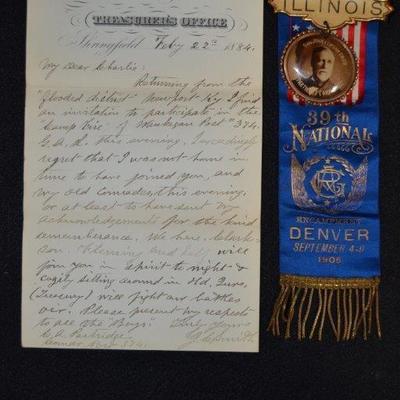 TREASURER'S OFFICE
Springfield Feby 22nd 1884.
My Dear Charlie:
Returning from the
"flooded district" Newport Ky I find
an invitation to participate in the
"Camp Fire" of Waukegan Post No 374
G.A.R. this evening, I
regret that I was not home in
time to have joined you, and
my old Comrades, this evening,
or at least to have sent my
acknowledgements for the kind
rememberance. We here,
son and will
join you in spirit to-night &
sitting around in old
(Treasury) will fight our battles
over. Please present my respects
to all the "Boys". Truly yours
C.A. Partridge
Comdr Post 374.
ILLINOIS
39th
NATIONAL
ENCAMPMENT
DENVER
SEPTEMBER 4-8
1905